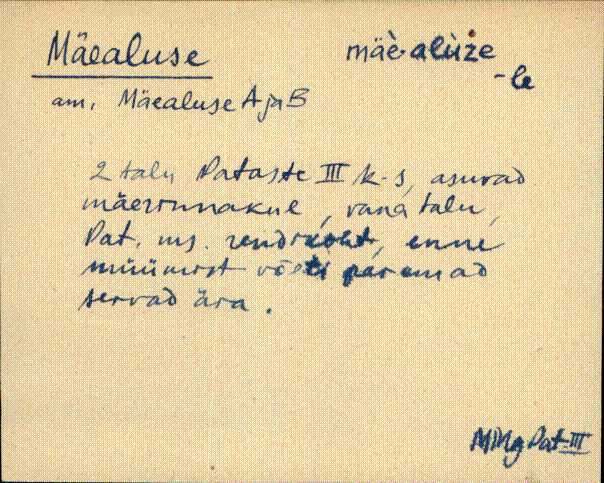 Mäealuse
mäè·alùže
-le
am. Mäealuse A ja B
2 talu Pataste III k-s, asuvad
mäerinnakul, vana talu,
Pat. ms. rendikoht, enne
müümist võeti paremad
servad ära.
Pat III